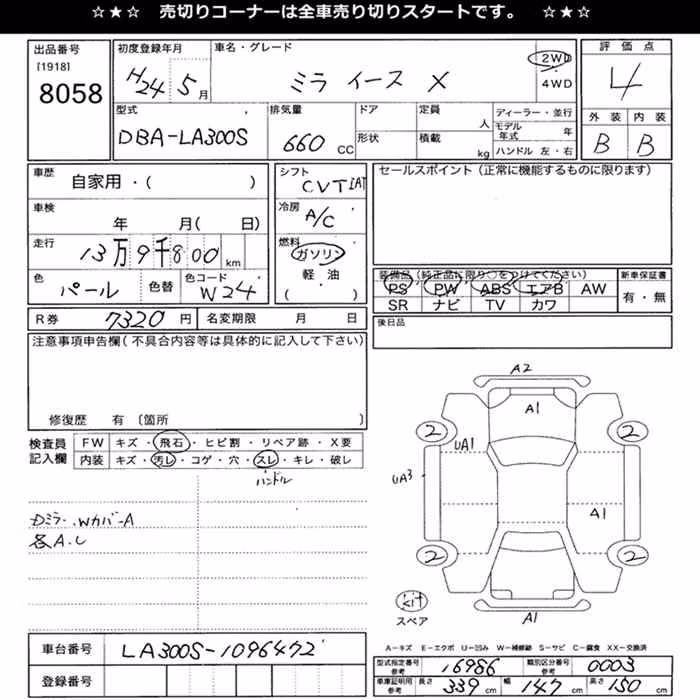 ☆★☆ 売切りコーナーは全車売り切りスタートです。 ☆★☆
出品番号
[1918]
8058
初度登録年月
H24 5月
車名・グレード
ミラ イース X
2WD
4WD
評価点
4
外装 内装
B B
型式
DBA-LA300S
排気量
660 CC
ドア
形状
定員 人
積載 kg
ディーラー・並行
モデル年式 年
ハンドル 左・右
車歴
自家用・( )
車検
年 月( 日)
走行
13万9千800 km
色
パール
色替
色コード
W24
シフト
CVT IAT
冷房
A/C
燃料
ガソリン
軽・油
( )
セールスポイント(正常に機能するものに限ります)
装備品(純正品に限り○をつけてください)
PS PW ABS エアB AW
SR ナビ TV カワ
新車保証書
有・無
R券 7320 円
名変期限 月 日
後日品
注意事項申告欄(不具合内容等は具体的に記入して下さい)
修復歴 有〔箇所 〕
検査員記入欄
FW キズ・飛石・ヒビ割・リペア跡・X要
内装 キズ・汚レ・コゲ・穴・スレ・キレ・破レ
ハンドル
Dミラー、Wカバ-A
各A.U
A2
A1
2
2
UA1
UA3
A1
2
2
A1
スペア
車台番号 LA300S-1096472
登録番号
A-キズ E-エクボ U-凹み W-補修跡 S-サビ C-腐食 XX-交換済
型式指定番号 参考 16986
類別区分番号 参考 0003
車庫証明用 参考 長さ 339 cm 幅 147 cm 高さ 150 cm